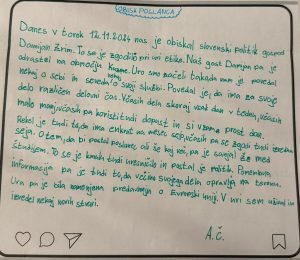 OBISK POSLANCA
Danes v torek 12.11.2024 nas je obiskal slovenski politik gospod
Damijan Zrim. To se je zgodilo pri uri etike. Naš gost Damijan pa je
odrastel na območju. Uro smo začeli takoda nam je povedal
nekaj o sebi in seveda o svoji službi. Povedal je, da ima za svoje
delo različen delovni čas. Včasih dela skoraj vsak dan v tednu, včasih
malo manj, včasih pa koristi tudi dopust in si vzame prost dan.
Rekel je tudi ta, da ima enkrat na mesec sejo, včasih pa se zgodi tudi izredna
seja. O tem, da bi postal poslanec ali še kaj več, pa je sanjal že med
študijem. To se je kmalu tudi uresničilo in postal je politik. Pomembna
informacija pa je tudi to, da večino svojega dela opravlja na terenu.
Ura pa je bila namenjena predavanju o Evropski uniji. V uri sem užival in
izvedel nekaj novih stvari.
A.Č.